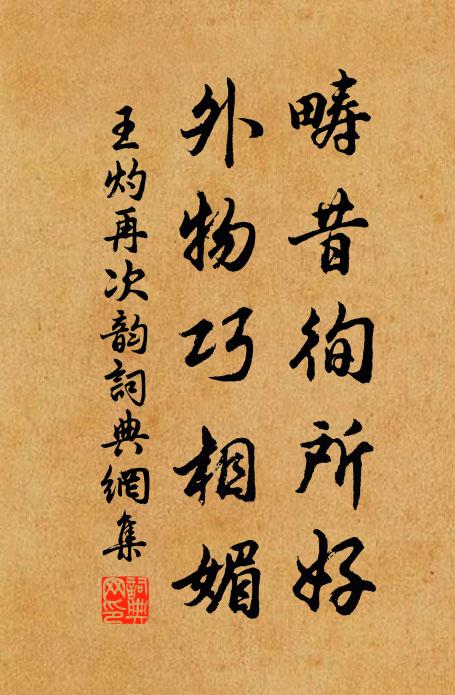 疇昔徇所好
外物巧相媚
王灼再次韵詞典網集
詞典网印